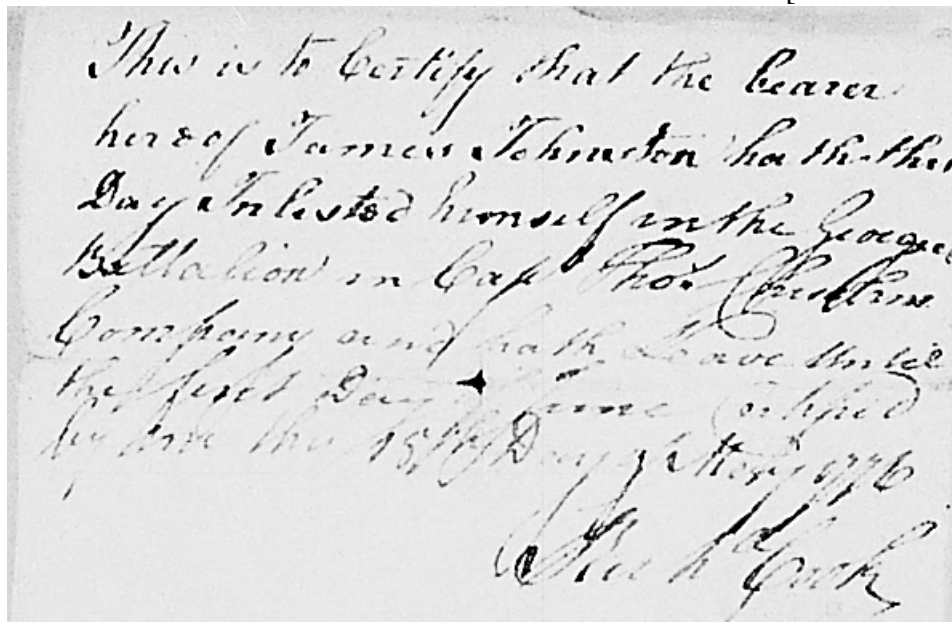 This is to Certify that the bearer
hereof James Johnston hath this
Day Inlisted himself in the Georgia
Battalion in Capt Thos
Company and hath Leave Until
the first Day June Certified
by me this 15th Day of May 1776
Richd Cook